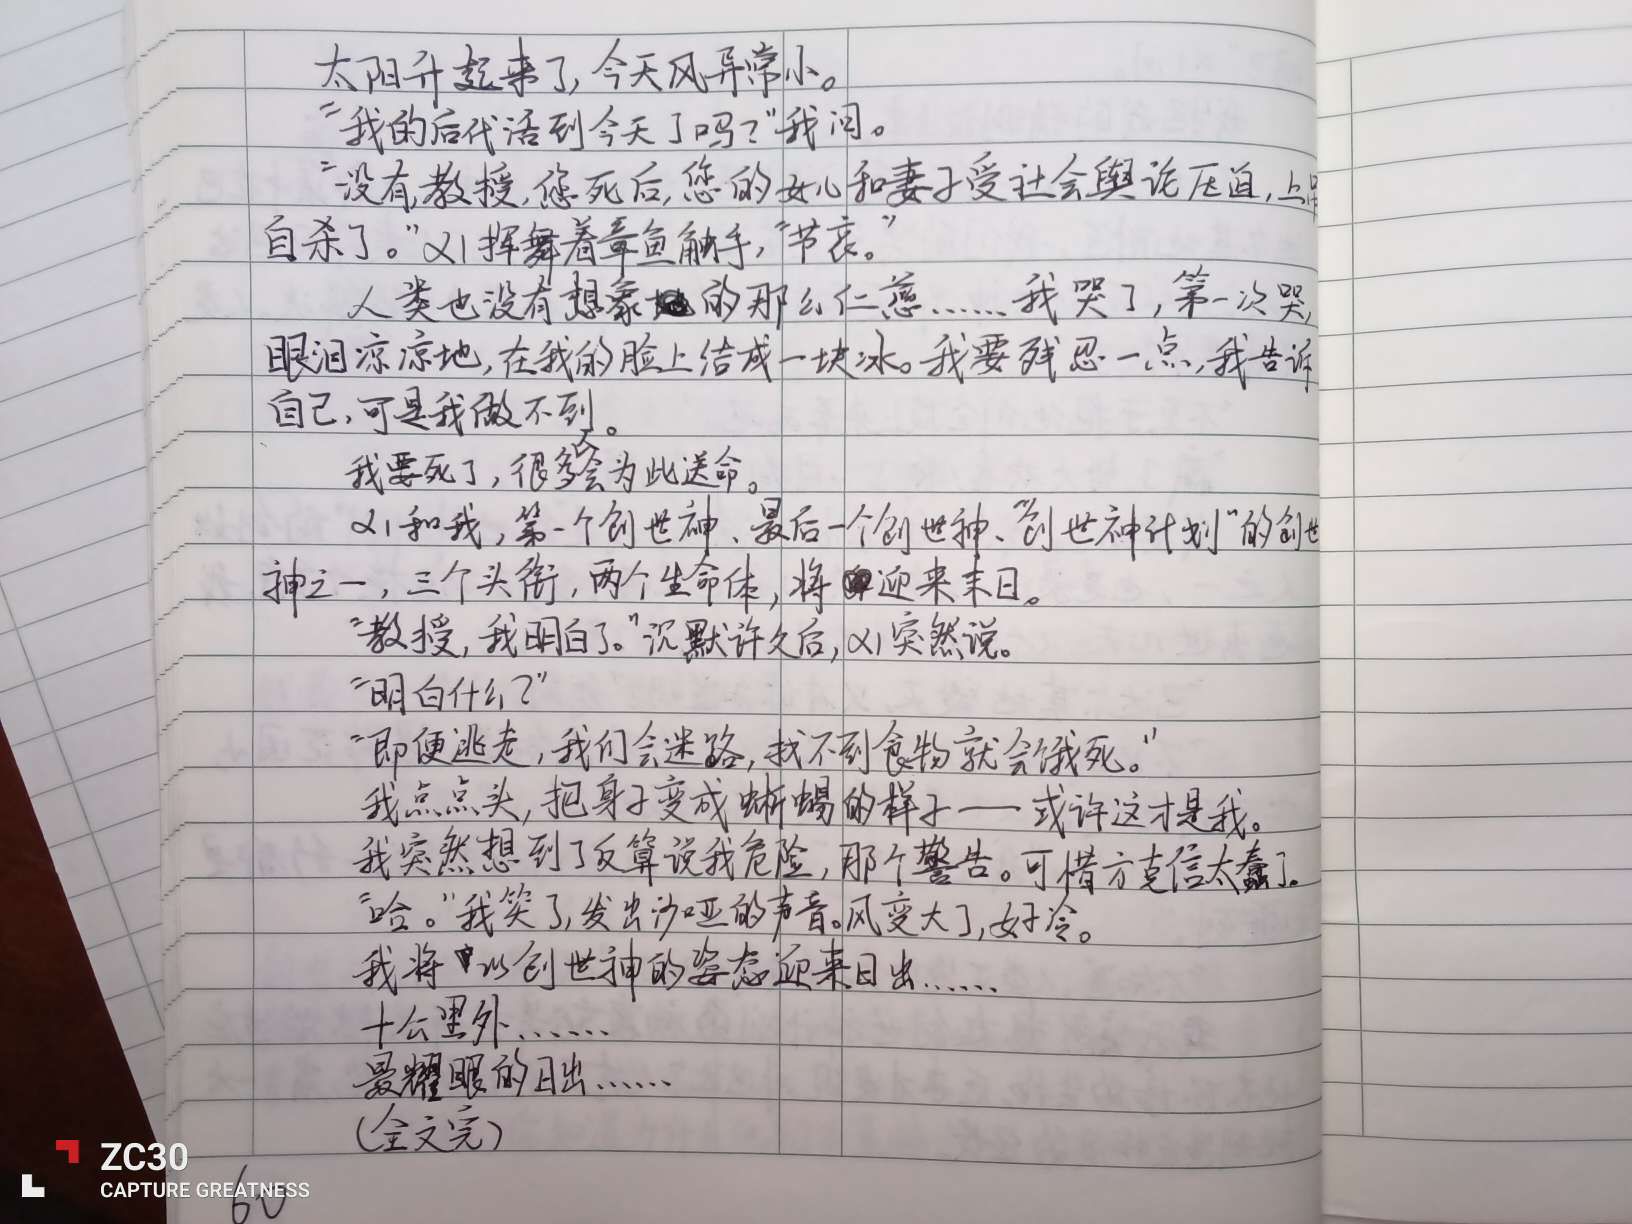 太阳升起来了,今天风异常小。
“我的后代活到今天了吗?”我问。
“没有,教授,您死后,您的女儿和妻子受社会舆论压迫,上吊
自杀了。”α1挥舞着章鱼触手,“节哀。”
人类也没有想象的那么仁慈……我哭了,第一次哭,
眼泪凉凉地,在我的脸上结成一块冰。我要残忍一点,我告诉
自己,可是我做不到。
我要死了,很多人会为此送命。
α1和我,第一个创世神、最后一个创世神、“创世神计划”的创世
神之一,三个头衔,两个生命体,将迎来末日。
“教授,我明白了。”沉默许久后,α1突然说。
“明白什么?”
“即便逃走,我们会迷路,找不到食物就会饿死。”
我点点头,把身子变成蜥蜴的样子——或许这才是我。
我突然想到了反算说我危险,那个警告。可惜方克信太蠢了。
“哈。”我笑了,发出沙哑的声音。风变大了,好冷。
我将以创世神的姿态迎来日出……
十公里外……
最耀眼的日出……
(全文完)
60
ZC30
CAPTURE GREATNESS